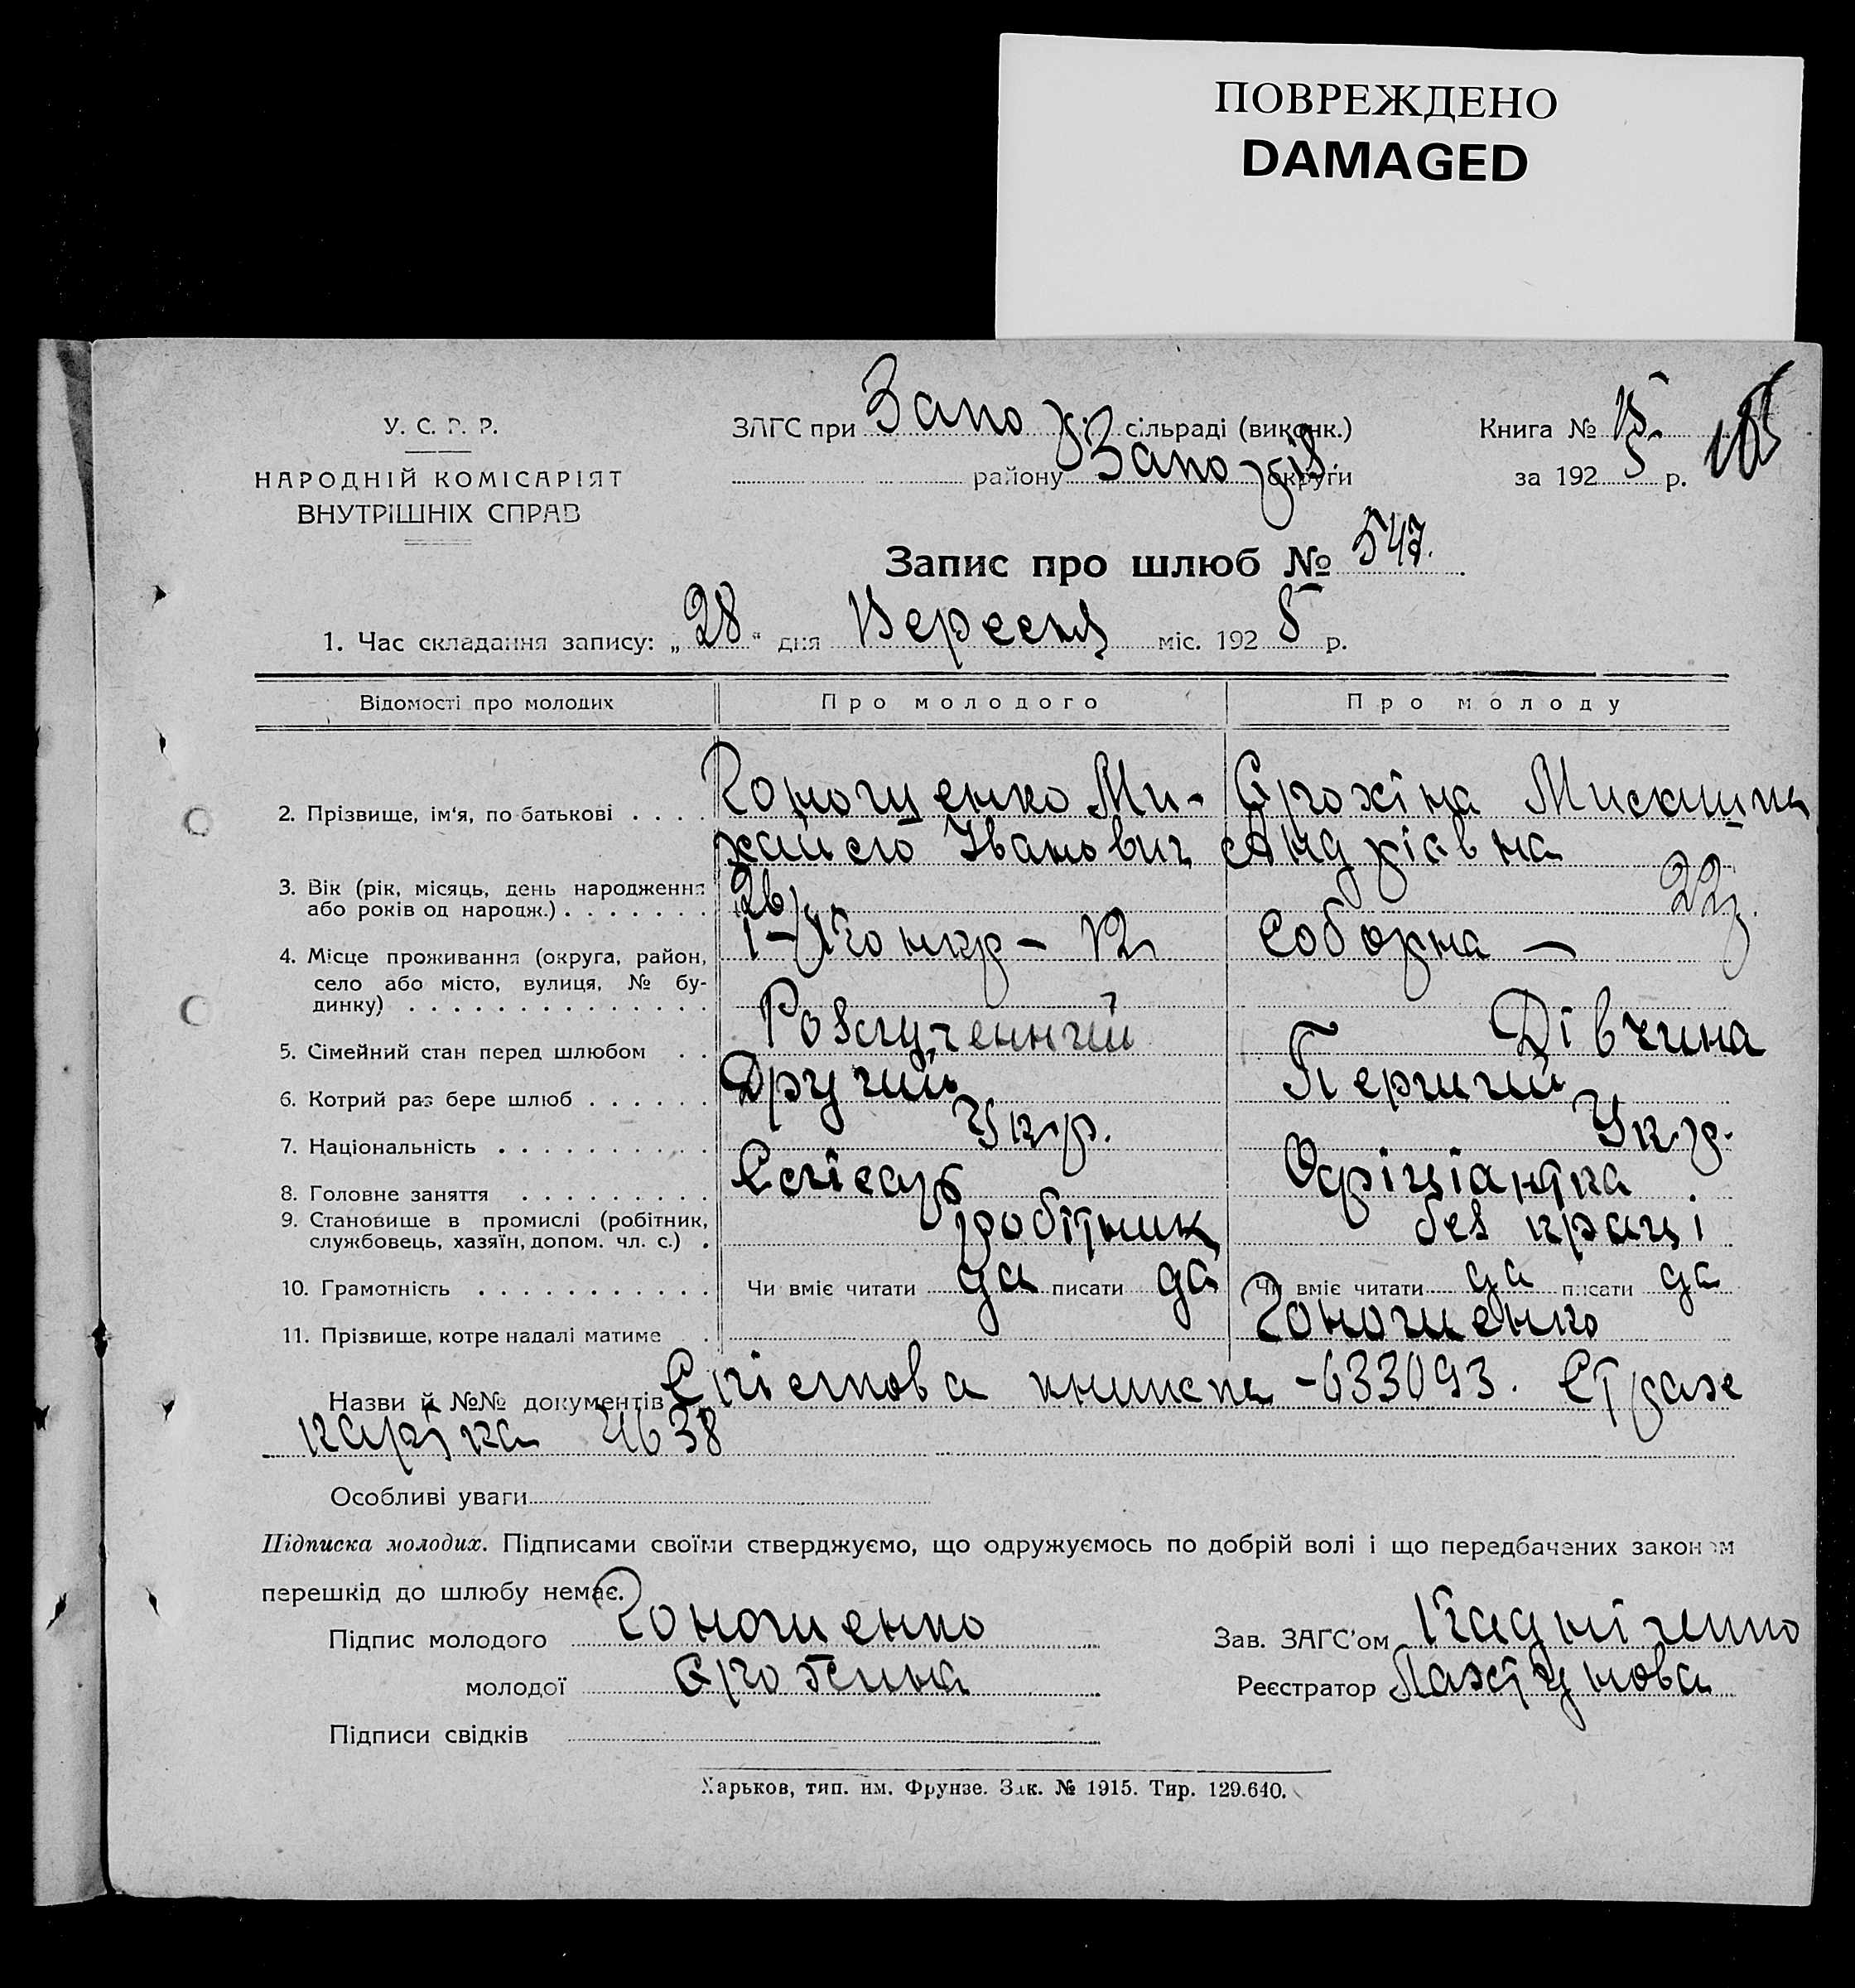 ПОВРЕЖДЕНО
DAMAGED
У. С. Р. Р.
НАРОДНІЙ КОМІСАРІЯТ
ВНУТРІШНІХ СПРАВ
ЗАГС при Запо сільраді (виконк.)
району Запо округи
Книга №
за 192 5 р.
Запис про шлюб № 547.
1. Час складання запису: „28" дня Вересня міс. 192 5 р.
Відомості про молодих Про молодого Про молоду
2. Прізвище, ім'я, по батькові Ми- Єрохіна
хайло Іванович Андріівна
3. Вік (рік, місяць, день народження 26 22
або років од народж.)
4. Місце проживання (округа, район, Соборна —
село або місто, вулиця, № бу-
динку)
5. Сімейний стан перед шлюбом Розлученний Дівчина
6. Котрий раз бере шлюб Другий Перший
7. Національність Укр. Укр.
8. Головне заняття Слісарь Офіціантка
9. Становище в промислі (робітник, робітник без праці
службовець, хазяїн, допом. чл. с.)
10. Грамотність Чи вміє читати да писати да Чи вміє читати да писати да
11. Прізвище, котре надалі матиме Гоношенко
Назви й №№ документів книжка - 633093. Страх
картка 4638
Особливі уваги
Підписка молодих. Підписами своїми стверджуємо, що одружуємось по добрій волі і що передбачених законом
перешкід до шлюбу немає.
Підпис молодого Гоношенко Зав. ЗАГС'ом
молодої Єрохина Реєстратор Пахтунова
Підписи свідків
Харьков, тип. им. Фрунзе. Зак. № 1915. Тир. 129.640.